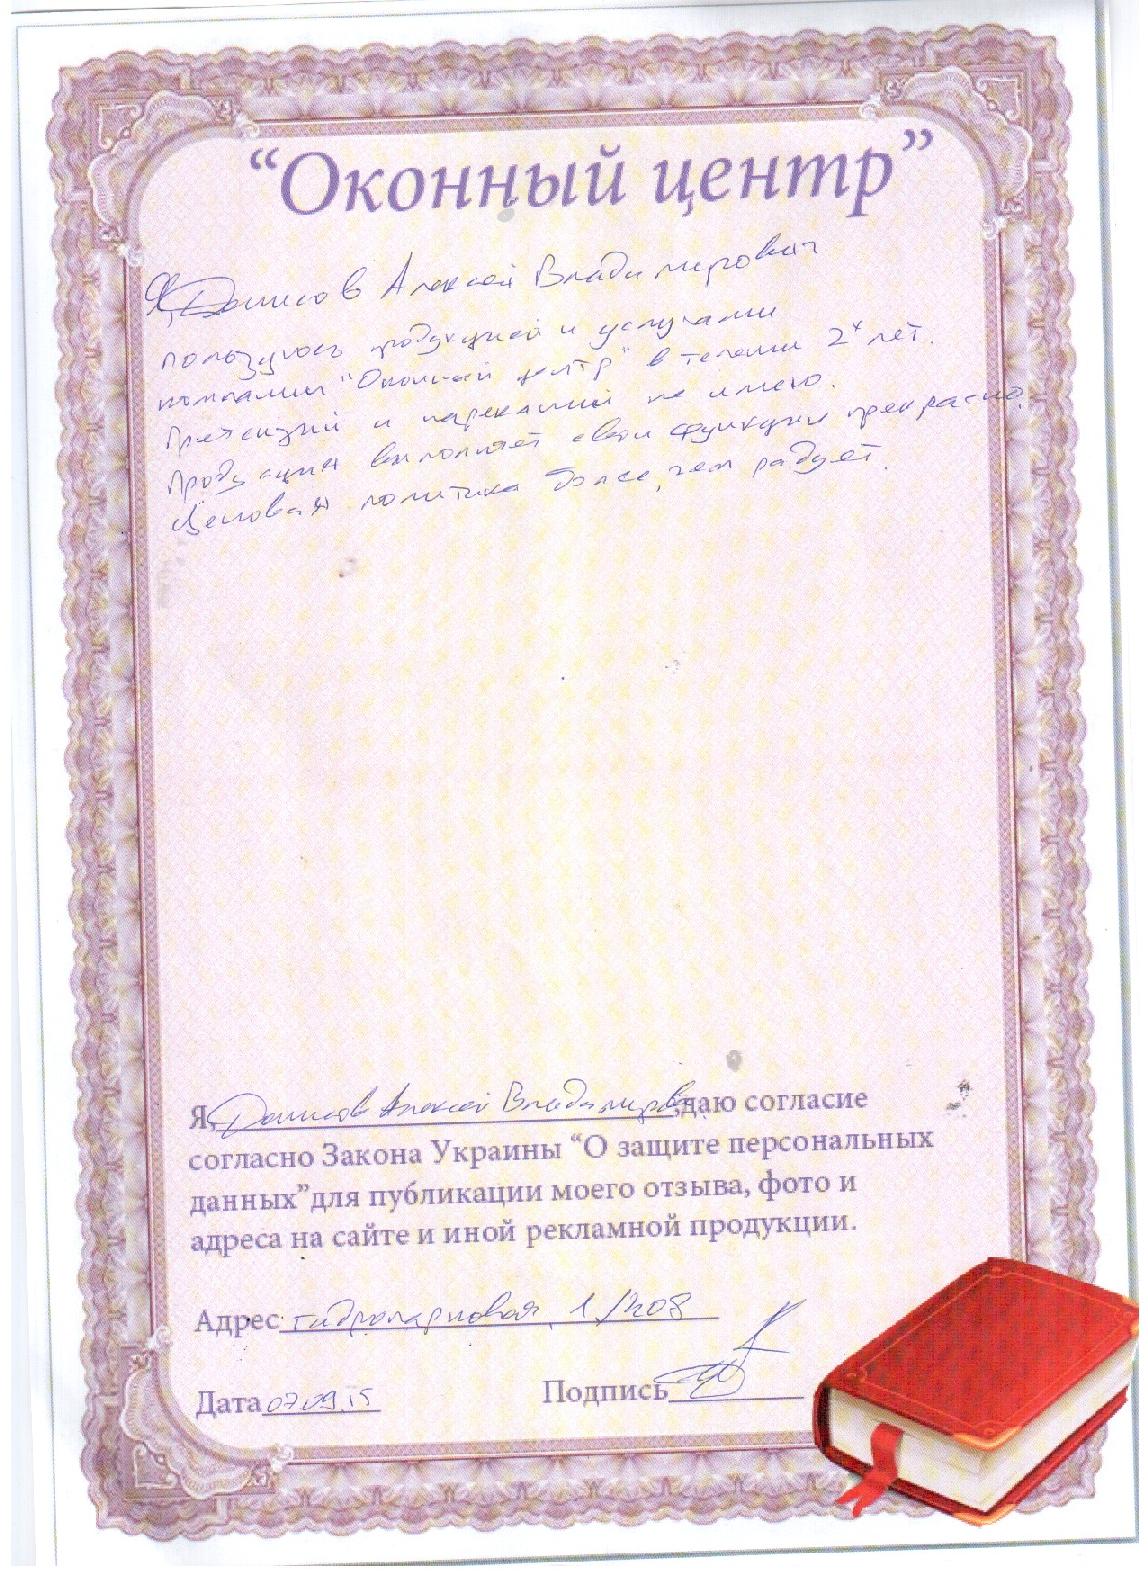 “Оконный центр”
Я, Денисов Алексей Владимирович
пользуюсь продукцией и услугами
компании "Оконный центр" в течении 2х лет.
Претензий и нареканий не имею.
Продукция выполняет свои функции прекрасно.
Ценовая политика более, чем радует.
Я, Денисов Алексей Владимирович, даю согласие
согласно Закона Украины “О защите персональных
данных”для публикации моего отзыва, фото и
адреса на сайте и иной рекламной продукции.
Адрес гидропарковая, 1/208
Дата 07.09.15 Подпись